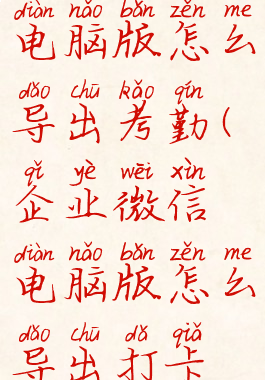 diàn nǎo bǎn zěn me
电脑版怎么
dǎo chū kǎo qín
导出考勤(
qǐ yè wēi xìn
企业微信
diàn nǎo bǎn zěn me
电脑版怎么
dǎo chū dǎ qiǎ
导出打卡